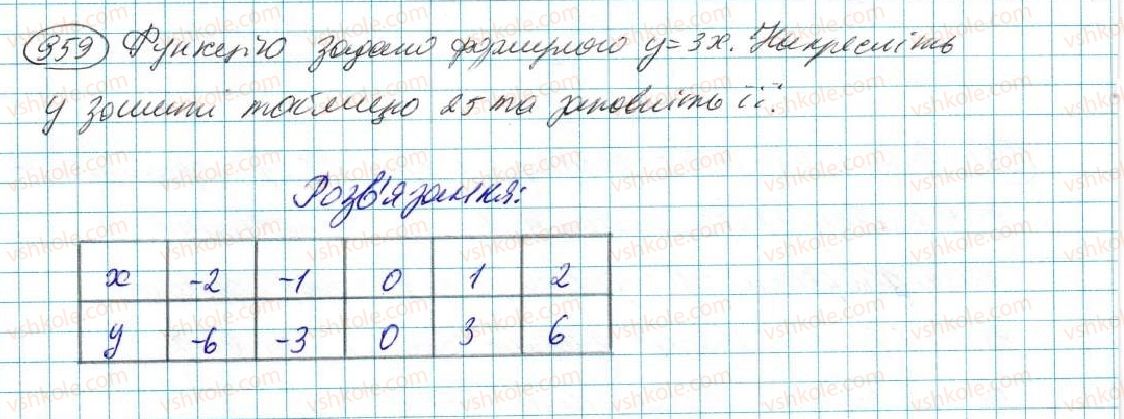 959 Функцію задано формулою y = 3x. Накресліть
у зошиті таблицю 25 та заповніть її.
Розв'язання:
x -2 -1 0 1 2
y -6 -3 0 3 6
vshkole.com